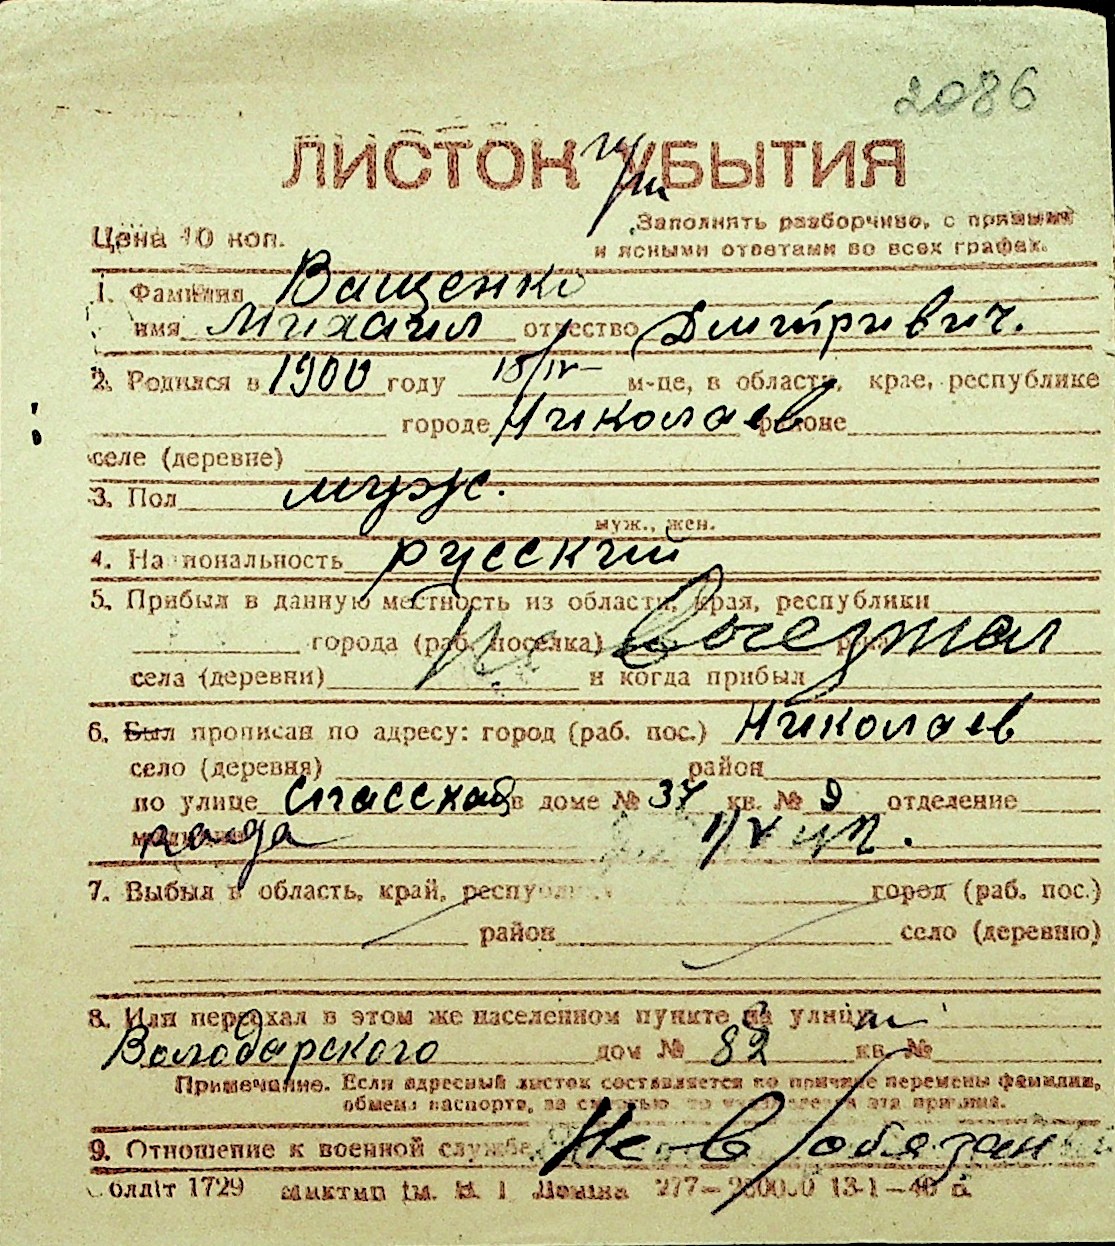 2086
ЛИСТОК УБЫТИЯ
Цена 10 коп.
Заполнять разборчиво, с прямыми
и ясными ответами во всех графах.
1. Фамилия Ващенко
имя Михаил отчество Дмитриевич.
2. Родился в 1900 году 15/IV м-це, в области, крае, республике
городе Николаев районе
селе (деревне)
3. Пол муж.
муж., жен.
4. Национальность русский
5. Прибыл в данную местность из области, края, республики
города (раб. поселка) Не выезжал
села (деревни) и когда прибыл
6. Был прописан по адресу: город (раб. пос.) Николаев
село (деревня) район
по улице Спасская в доме № 37 кв. № 9 отделение
7. Выбыл в область, край, республику город (раб. пос.)
район село (деревню)
8. Или переехал в этом же населенном пункте на улицу
Володарского дом № 82 кв. №
Примечание. Если адресный листок составляется по причине перемены фамилии,
обмена паспорта, за смертью, то указывается эта причина.
9. Отношение к военной службе Не в/обязан
1729 277— 13-1—40 г.